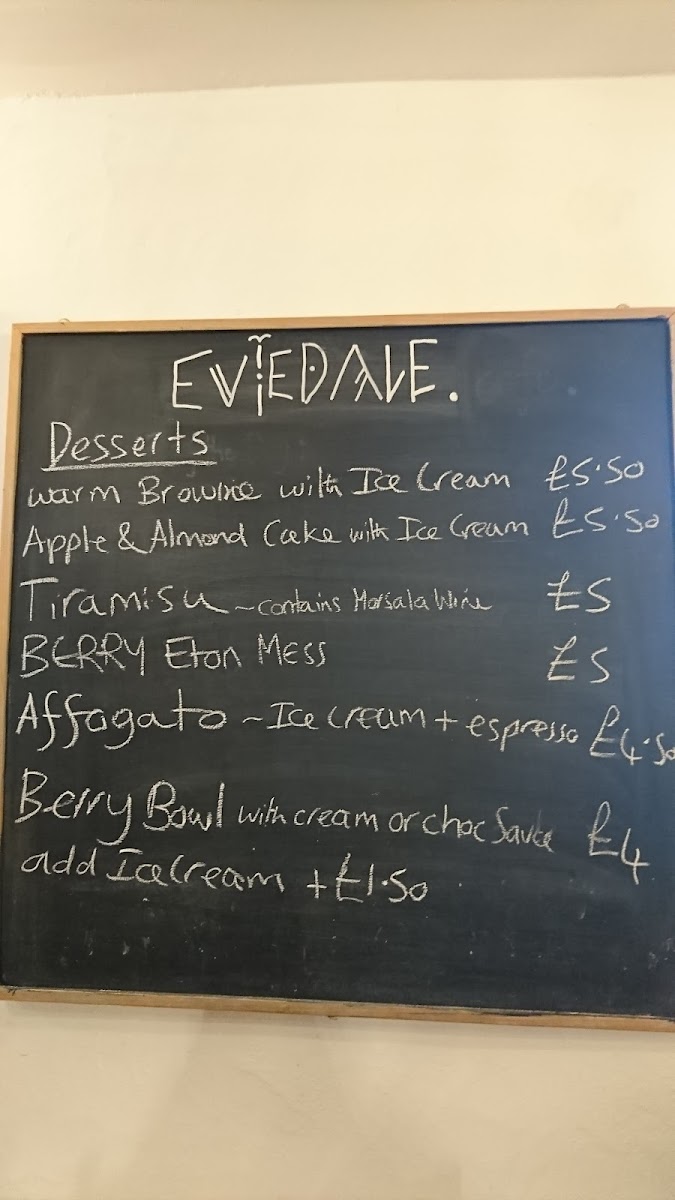 EVIEDALE.
Desserts
warm Brownie with Ice Cream £5.50
Apple & Almond Cake with Ice Cream £5.50
Tiramisu ~ contains Marsala Wine £5
BERRY Eton Mess £5
Affogato ~ Ice cream + espresso £4.50
Berry Bowl with cream or choc Sauce £4
add Ice cream + £1.50